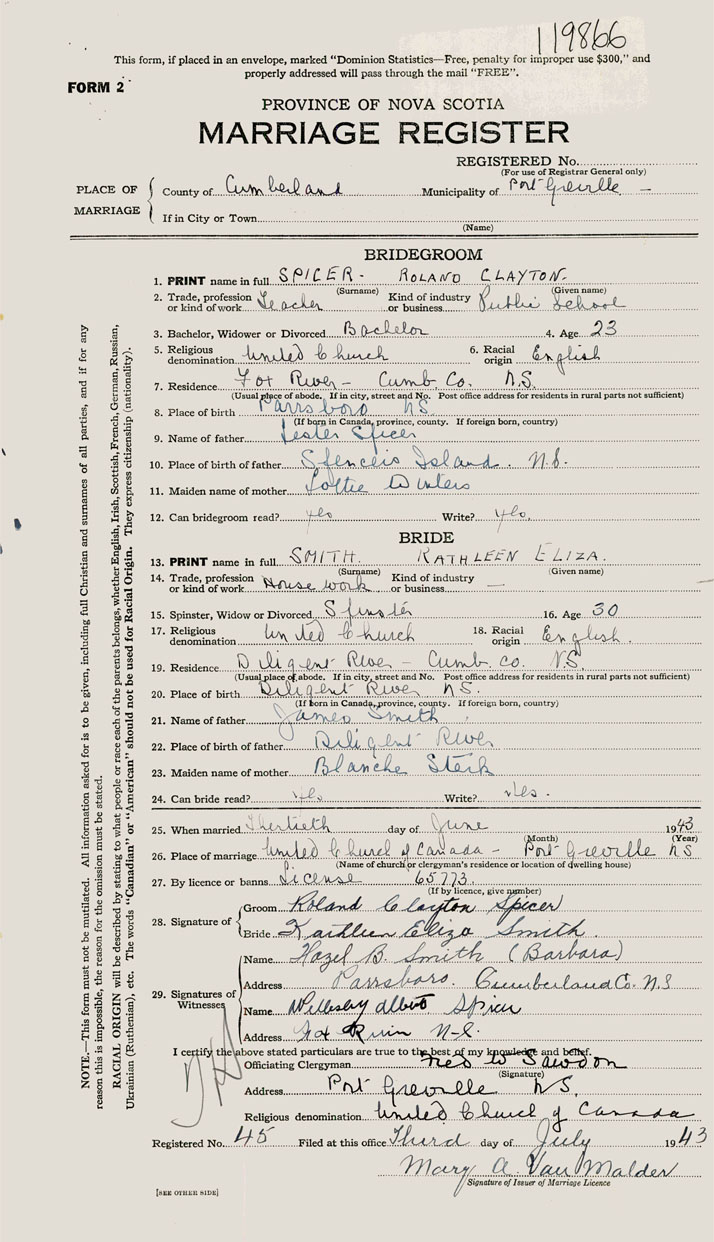 119866
This form, if placed in an envelope, marked "Dominion Statistics—Free, penalty for improper use $300," and
properly addressed will pass through the mail "FREE".
FORM 2
PROVINCE OF NOVA SCOTIA
MARRIAGE REGISTER
REGISTERED No.
(For use of Registrar General only)
PLACE OF MARRIAGE
County of Cumberland Municipality of Port Greville —
If in City or Town
(Name)
BRIDEGROOM
1. PRINT name in full SPICER - ROLAND CLAYTON.
(Surname) (Given name)
2. Trade, profession or kind of work Teacher Kind of industry or business Public School
3. Bachelor, Widower or Divorced Bachelor 4. Age 23
5. Religious denomination United Church 6. Racial origin English
7. Residence Fox River - Cumb. Co. N.S.
(Usual place of abode. If in city, street and No. Post office address for residents in rural parts not sufficient)
8. Place of birth Parrsboro NS.
(If born in Canada, province, county. If foreign born, country)
9. Name of father Lester Spicer
10. Place of birth of father Spencers Island. N.S.
11. Maiden name of mother Lottie Winters
12. Can bridegroom read? Yes Write? Yes.
BRIDE
13. PRINT name in full SMITH. KATHLEEN ELIZA.
(Surname) (Given name)
14. Trade, profession or kind of work House work Kind of industry or business —
15. Spinster, Widow or Divorced Spinster 16. Age 30
17. Religious denomination United Church 18. Racial origin English.
19. Residence Diligent River - Cumb. Co. N.S.
(Usual place of abode. If in city, street and No. Post office address for residents in rural parts not sufficient)
20. Place of birth Diligent River NS.
(If born in Canada, province, county. If foreign born, country)
21. Name of father James Smith
22. Place of birth of father Diligent River
23. Maiden name of mother Blanche
24. Can bride read? Yes Write? Yes.
25. When married Thirtieth day of June 1943
(Month) (Year)
26. Place of marriage United Church of Canada - Port Greville NS
(Name of church or clergyman's residence or location of dwelling house)
27. By licence or banns License 65773.
(If by licence, give number)
28. Signature of
Groom Roland Clayton Spicer
Bride Kathleen Eliza Smith.
29. Signatures of Witnesses
Name Hazel B. Smith (Barbara)
Address Parrsboro. Cumberland Co. N.S
Name Albert Spicer
Address Fox River N-S.
I certify the above stated particulars are true to the best of my knowledge and belief.
Officiating Clergyman W Sawdon
(Signature)
Address Port Greville NS.
Religious denomination United Church of Canada
Registered No. 45 Filed at this office Third day of July 1943
Mary A. Van Malder
Signature of Issuer of Marriage Licence
[SEE OTHER SIDE]
NOTE.—This form must not be mutilated. All information asked for is to be given, including full Christian and surnames of all parties, and if for any
reason this is impossible, the reason for the omission must be stated.
RACIAL ORIGIN will be described by stating to what people or race each of the parents belongs, whether English, Irish, Scottish, French, German, Russian,
Ukrainian (Ruthenian), etc. The words "Canadian" or "American" should not be used for Racial Origin. They express citizenship (nationality).